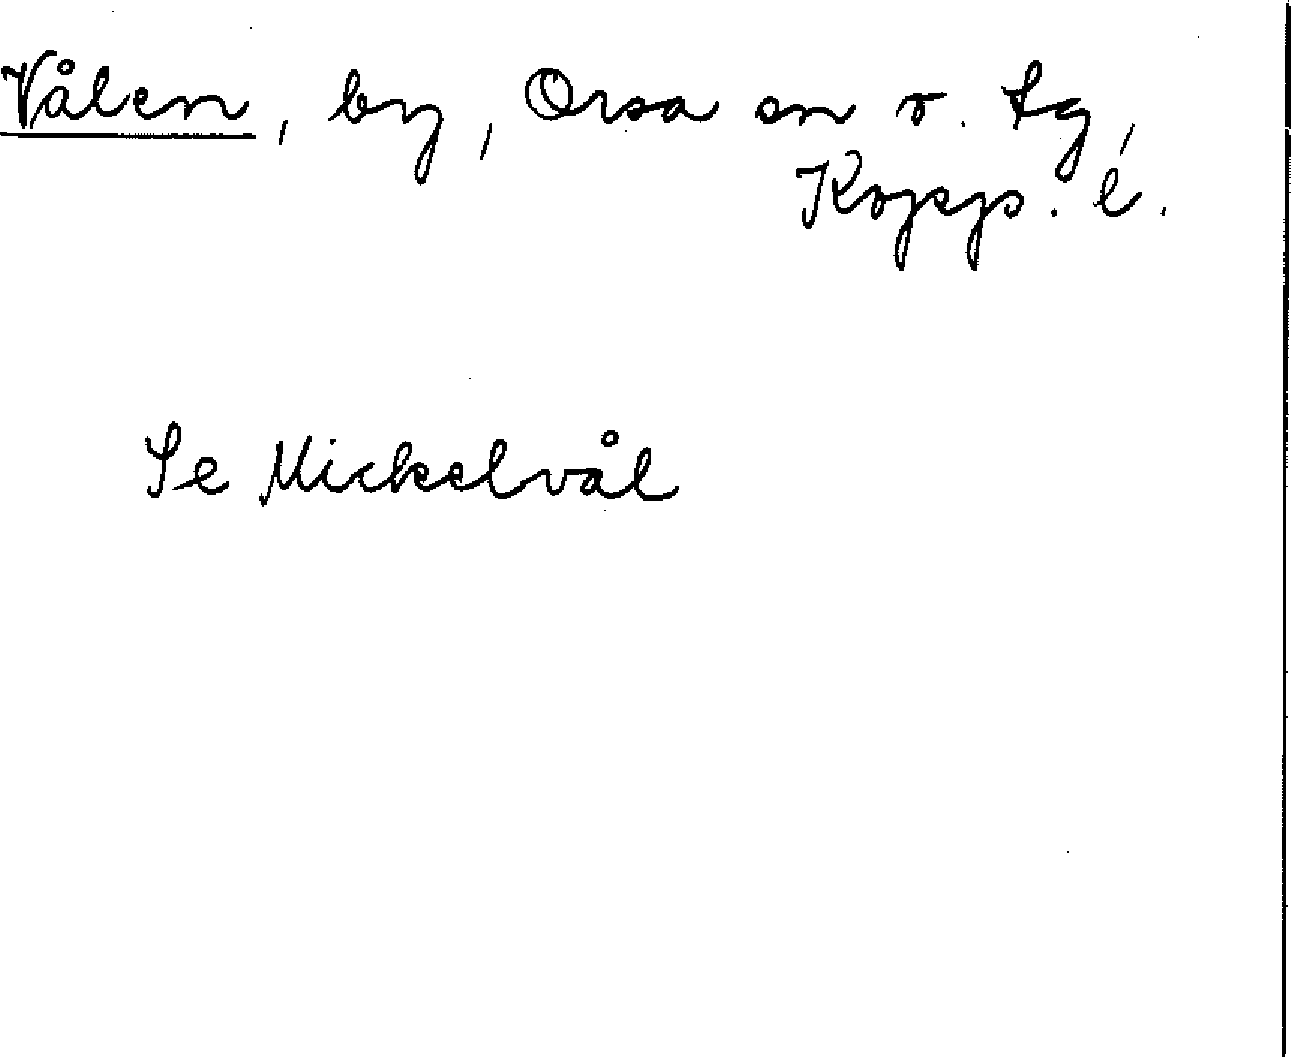 Vålen, by, Orsa sn o. tg,
Kopp. l.
Se Mickelvål